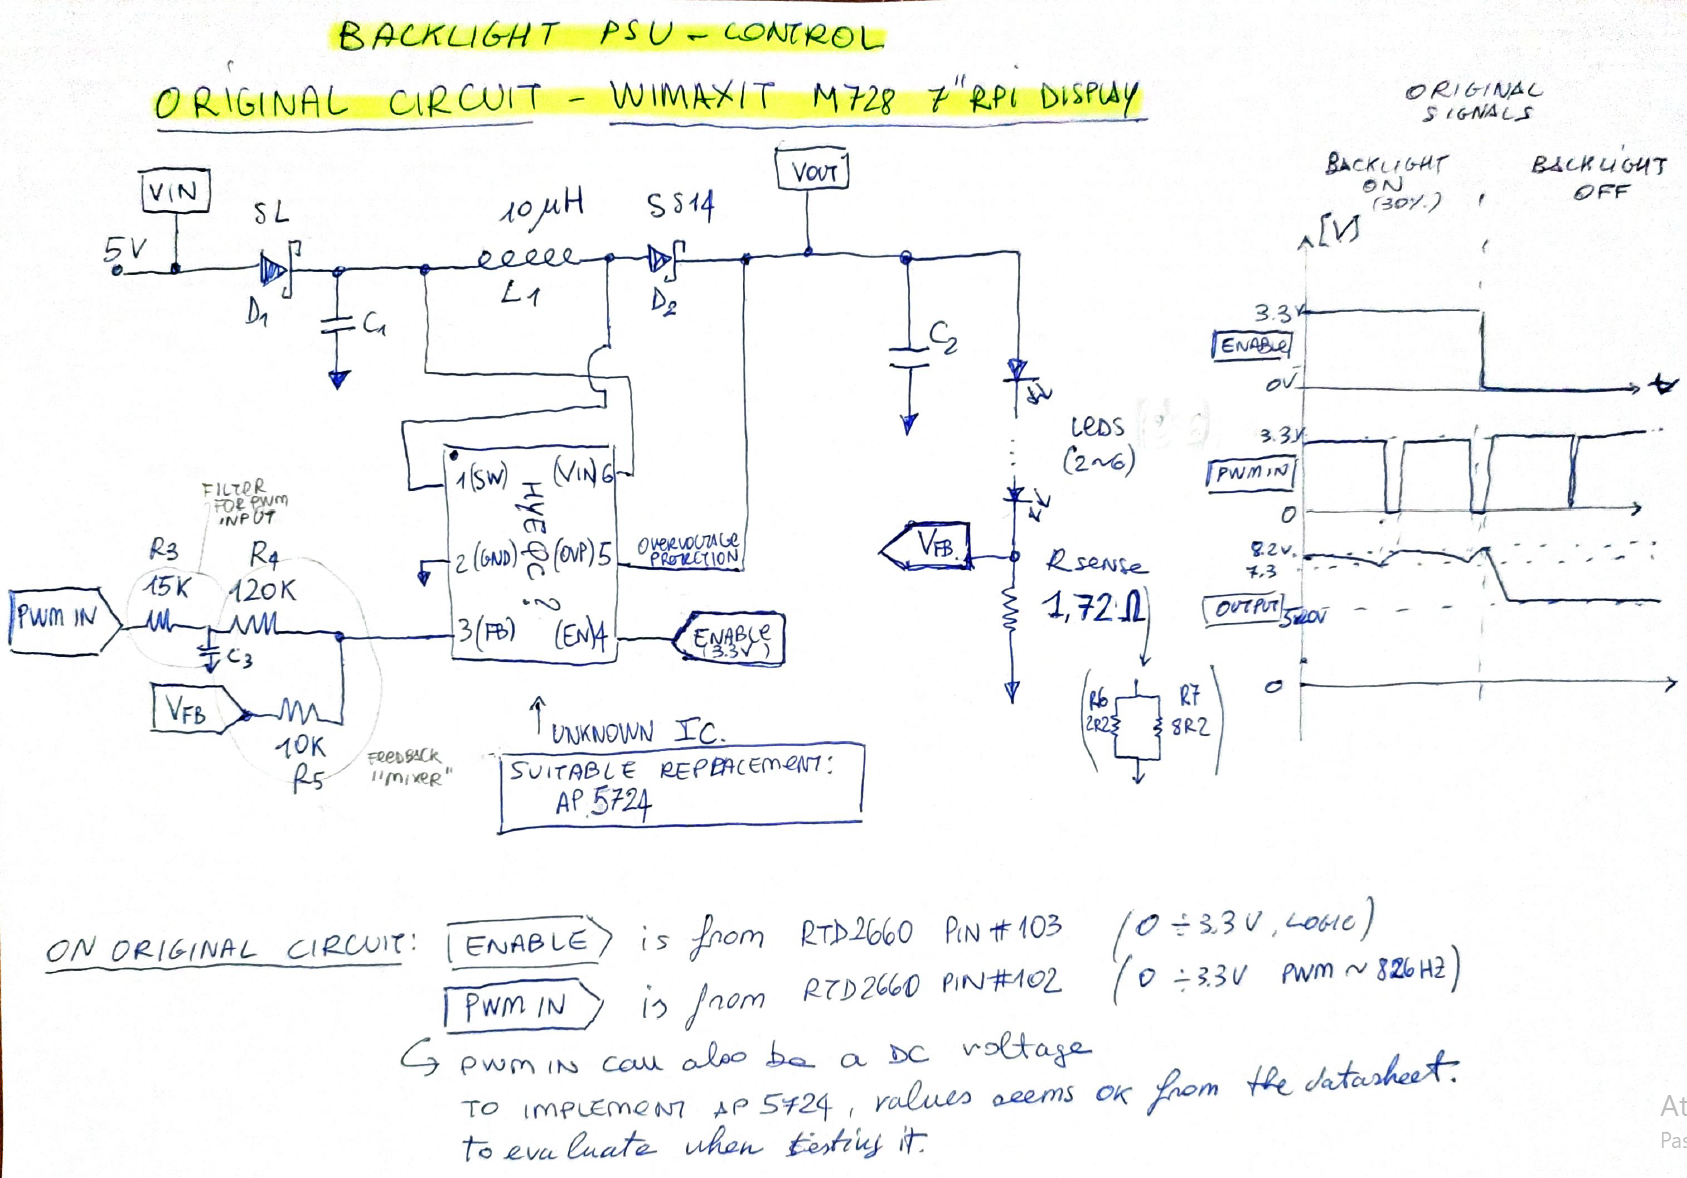 BACKLIGHT PSU - CONTROL
ORIGINAL CIRCUIT - WIMAXIT M728 7" RPi DISPLAY
ORIGINAL
SIGNALS
BACKLIGHT
ON
(30%)
BACKLIGHT
OFF
[V]
VIN
5V
SL
D1
C1
10µH
L1
SS14
D2
VOUT
C2
LEDS
(2~6)
VFB
R sense
1,72Ω
R6
2R2
R7
8R2
1(SW)
(VIN)6
2(GND)
(OVP)5
3(FB)
(EN)4
OVERVOLTAGE
PROTECTION
ENABLE
(3.3V)
FILTER
FOR PWM
INPUT
R3
15K
R4
120K
PWM IN
C3
VFB
10K
R5
FEEDBACK
"MIXER"
UNKNOWN IC.
SUITABLE REPLACEMENT:
AP5724
3.3V
ENABLE
0V
t
3.3V
PWM IN
0
8.2V
7.3
OUTPUT
0
ON ORIGINAL CIRCUIT: ENABLE is from RTD2660 PIN #103 (0 ÷ 3.3V, LOGIC)
PWM IN is from RTD2660 PIN #102 (0 ÷ 3.3V PWM ~ 826HZ)
PWM IN can also be a DC voltage
TO IMPLEMENT AP5724, values seems OK from the datasheet.
to evaluate when testing it.
At
Pas